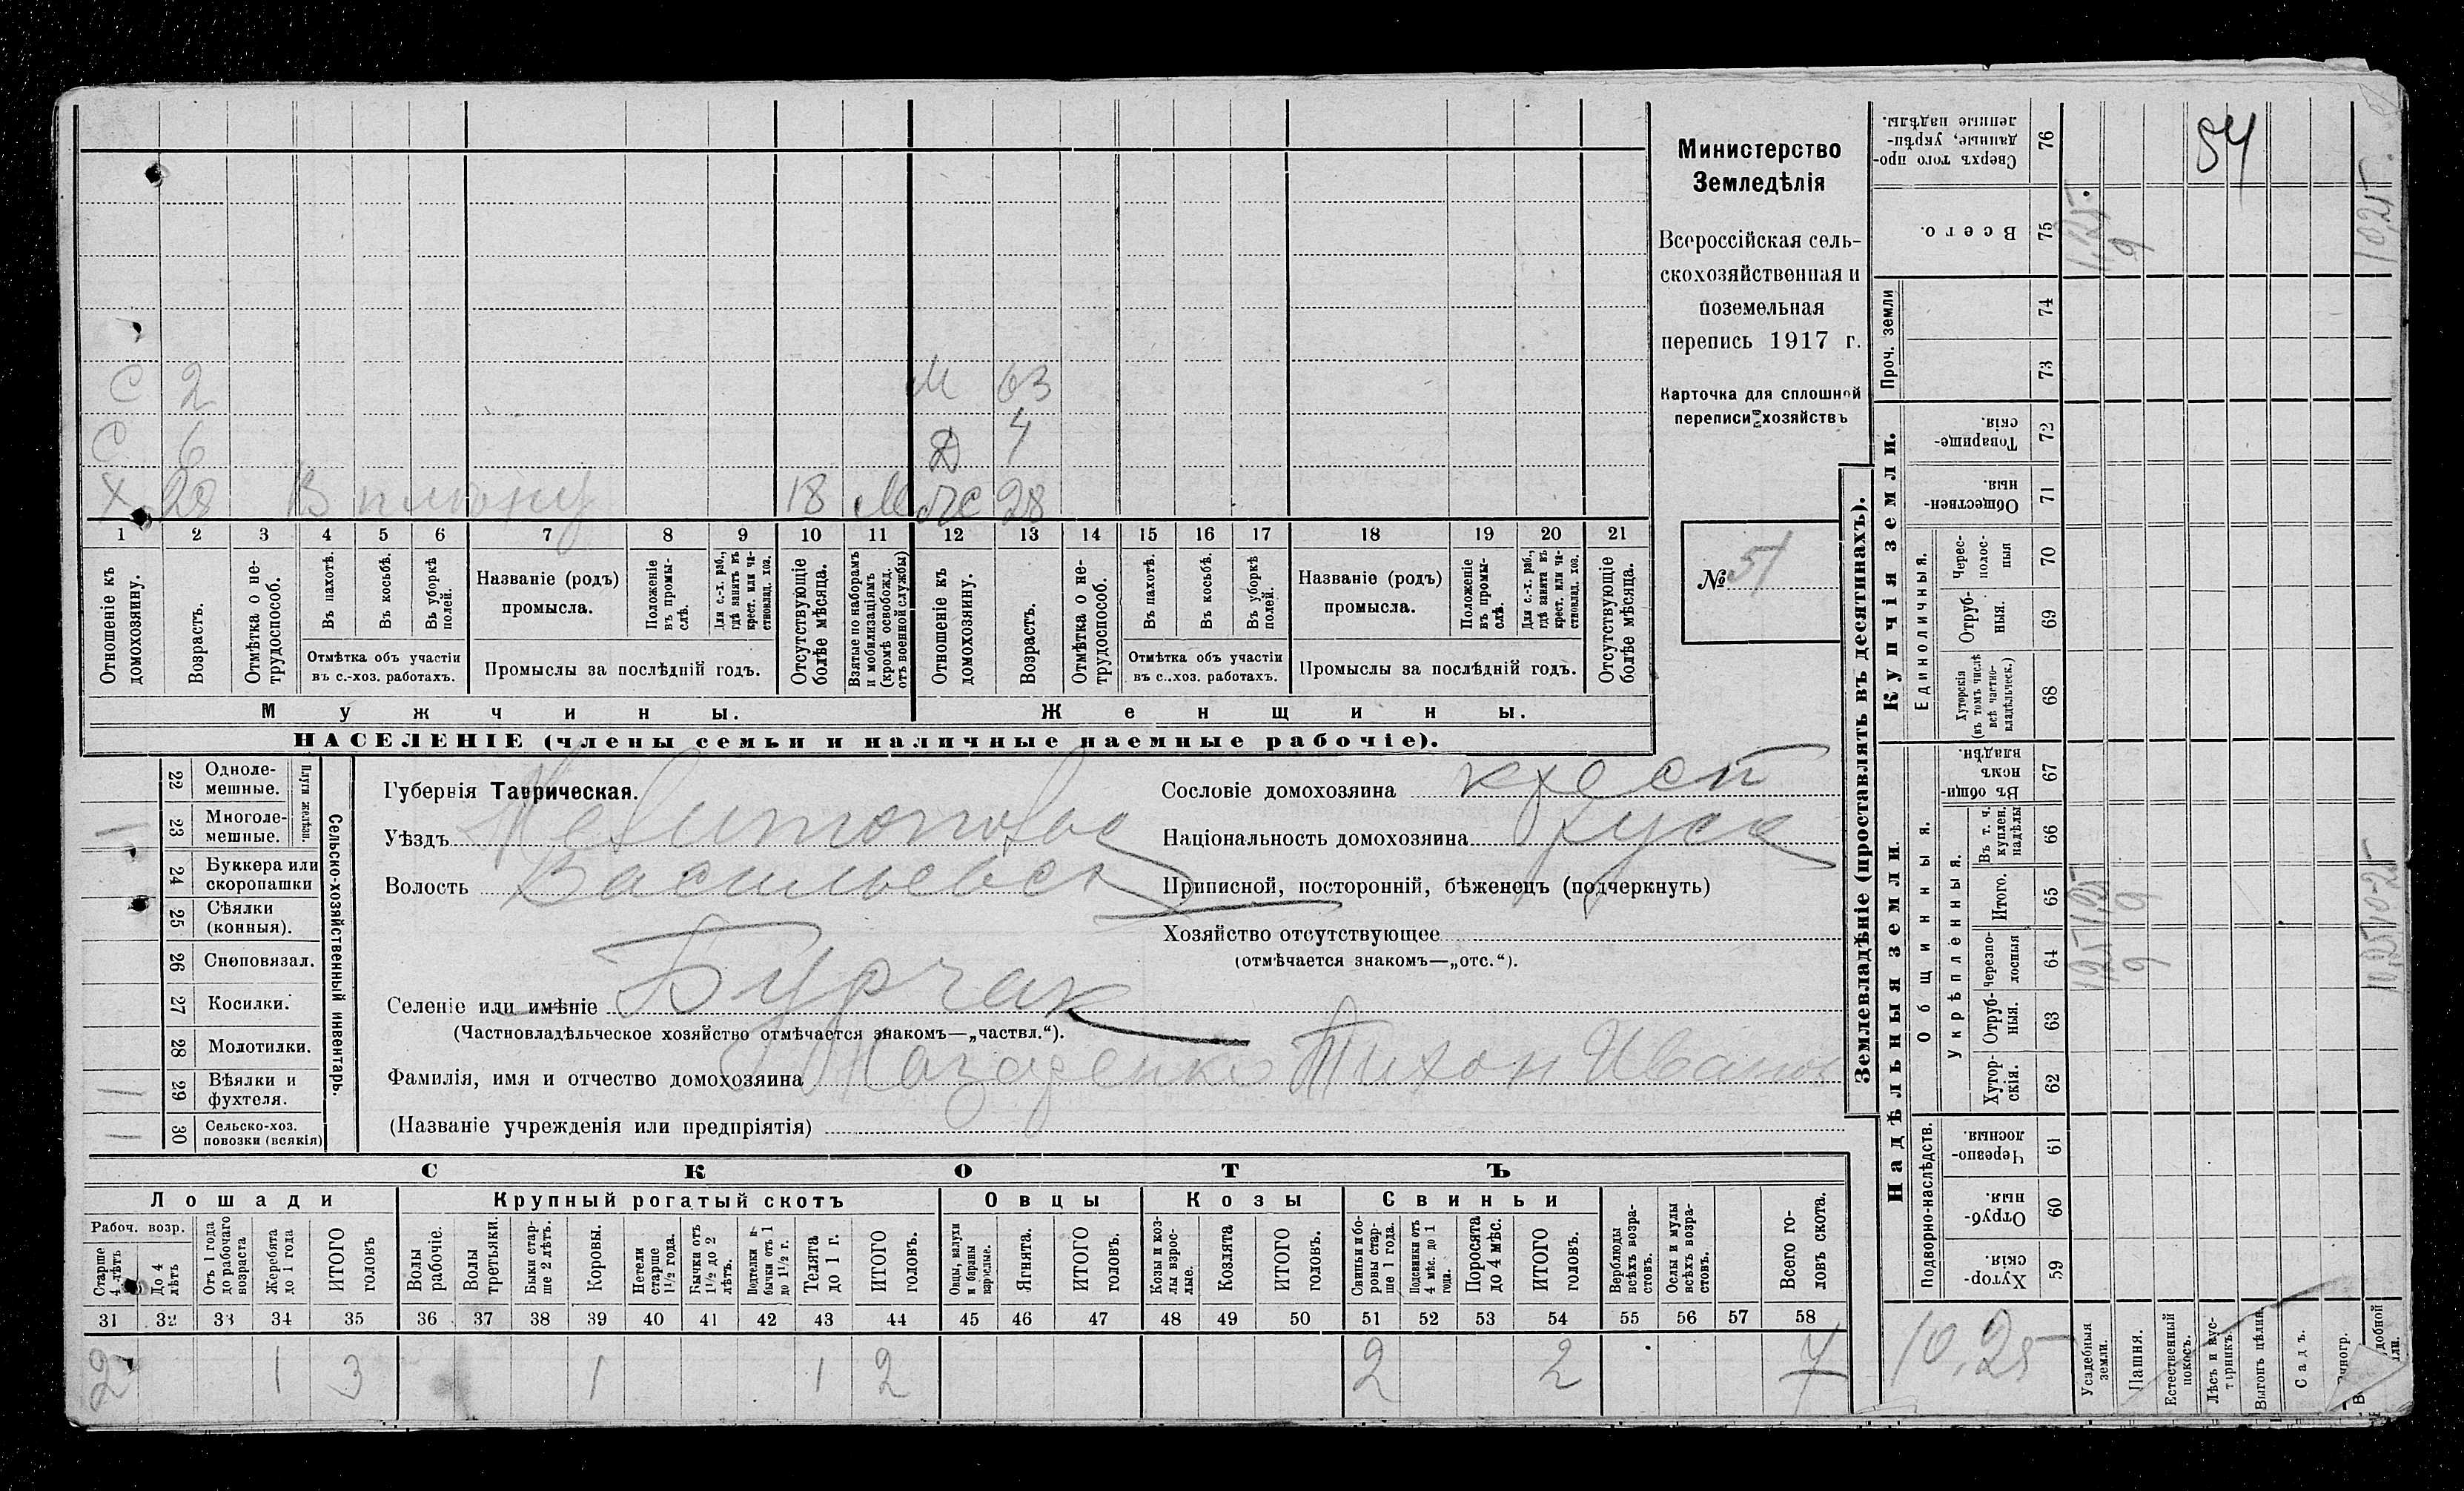 Министерство
Земледѣлія
Всероссійская сель-
скохозяйственная и
поземельная
перепись 1917 г.
Карточка для сплошной
переписи хозяйствъ
№ 51
54
С 2
М 63
С 6
Д 4
Х 28 В плѣну 18 М Же 28
1 2 3 4 5 6 7 8 9 10 11 12 13 14 15 16 17 18 19 20 21
Отношеніе къ домохозяину.
Возрастъ.
Отмѣтка о не-трудоспособ.
Въ пахотѣ.
Въ косьбѣ.
Въ уборкѣ полей.
Отмѣтка объ участіи
въ с.-хоз. работахъ.
Названіе (родъ)
промысла.
Положеніе въ промы-слѣ.
Для с.-х. раб., гдѣ занятъ въ крест. или ча-стновлад. хоз.
Промыслы за послѣдній годъ.
Отсутствующіе болѣе мѣсяца.
Взятые по наборамъ и мобилизаціямъ (кромѣ освобожд. отъ военной службы)
Отношеніе къ домохозяину.
Возрастъ.
Отмѣтка о не-трудоспособ.
Въ пахотѣ.
Въ косьбѣ.
Въ уборкѣ полей.
Отмѣтка объ участіи
въ с..хоз. работахъ.
Названіе (родъ)
промысла.
Положеніе въ промы-слѣ.
Для с.-х. раб., гдѣ занята въ крест. или ча-стновлад. хоз.
Промыслы за послѣдній годъ.
Отсутствующіе болѣе мѣсяца.
Мужчины.
Женщины.
НАСЕЛЕНІЕ (члены семьи и наличные наемные рабочіе).
Сельско-хозяйственный инвентарь.
Плуги желѣзн.
22 Одноле-
мешные.
23 Многоле-
мешные.
24 Буккера или
скоропашки
25 Сѣялки
(конныя).
26 Сноповязал.
27 Косилки.
28 Молотилки.
29 Вѣялки и
фухтеля.
30 Сельско-хоз.
повозки (всякія)
Губернія Таврическая.
Уѣздъ Мелитопольс
Волость Васильевск
Селеніе или имѣніе Бурчак
(Частновладѣльческое хозяйство отмѣчается знакомъ—„частвл.“).
Фамилія, имя и отчество домохозяина Тихон Иванов
(Названіе учрежденія или предпріятія)
Сословіе домохозяина крест
Національность домохозяина Руск
Приписной, посторонній, бѣженецъ (подчеркнуть)
Хозяйство отсутствующее
(отмѣчается знакомъ—„отс.“).
СКОТЪ
Лошади
Крупный рогатый скотъ
Овцы
Козы
Свиньи
Рабоч. возр.
Старше 4 лѣтъ
До 4 лѣтъ
Отъ 1 года до рабочаго возраста
Жеребята до 1 года
ИТОГО головъ
Волы рабочіе.
Волы третьяки.
Быки стар-ше 2 лѣтъ.
Коровы.
Нетели старше 1½ года.
Бычки отъ 1½ до 2 лѣтъ.
Телята до 1 г.
ИТОГО головъ.
Овцы, валухи и бараны взрослые.
Ягнята.
ИТОГО головъ.
Козы и коз-лы взрос-лые.
Козлята
ИТОГО головъ.
Свиньи и бо-ровы стар-ше 1 года.
Подсвинки отъ 4 мѣс. до 1 года.
Поросята до 4 мѣс.
ИТОГО головъ.
Верблюды всѣхъ возра-стовъ.
Ослы и мулы всѣхъ возра-стовъ.
Всего го-ловъ скота.
31 32 33 34 35 36 37 38 39 40 41 42 43 44 45 46 47 48 49 50 51 52 53 54 55 56 57 58
2 1 3 1 1 2 2 2 7
Землевладѣніе (проставлять въ десятинахъ).
Купчія земли.
Надѣльныя земли.
Сверхъ того про-данные, укрѣп-ленные надѣлы. 76
Всего. 75
1,25
9
10,25
Проч. земли
74
73
Товарище-скія. 72
Обществен-ныя. 71
Единоличныя.
Черес-полос-ныя 70
Отруб-ныя. 69
Хуторскія (въ томъ числѣ всѣ частно-владѣльческ.) 68
Общинныя.
Въ общи-номъ владѣн. 67
Укрѣпленныя.
Въ т. ч. куплен. надѣлы 66
Итого. 65
1,25
9
10-25
Черезпо-лосныя 64
1,25
9
10,25
Отруб-ныя. 63
Хутор-скія. 62
Подворно-наслѣдств.
Черезпо-лосныя. 61
Отруб-ныя. 60
Хутор-скія 59
10,25
Усадебныя земли.
Пашня.
Естественный покосъ.
Лѣсъ и кус-тарникъ.
Выгонъ цѣлин.
Садъ.